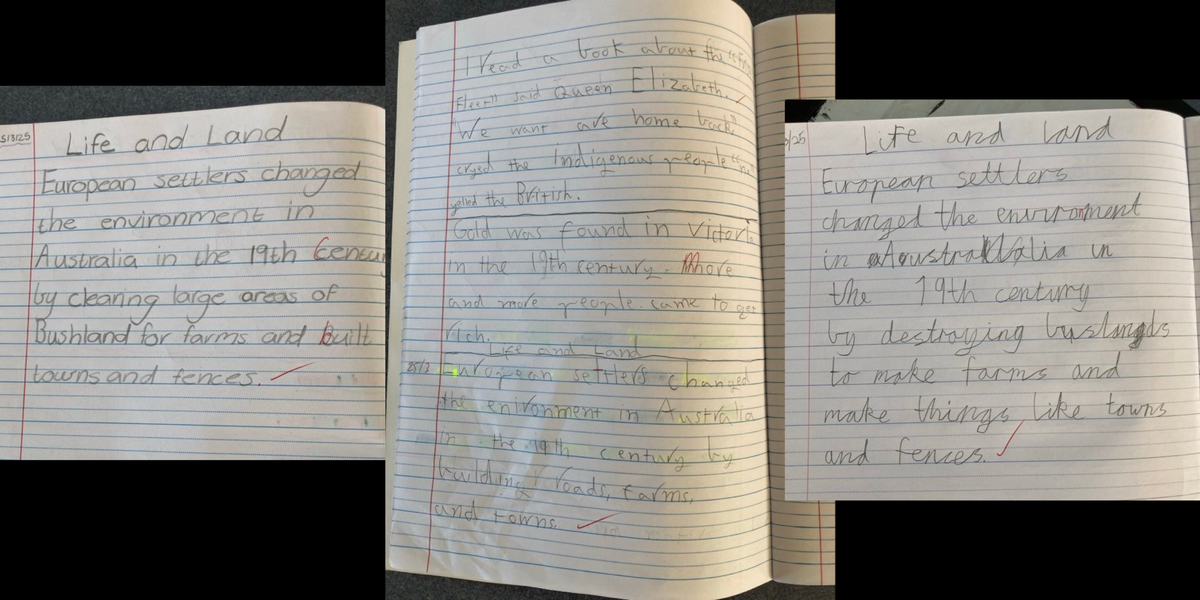 5/3/25
Life and Land
European settlers changed
the environment in
Australia in the 19th Centu
by clearing large areas of
Bushland for farms and built
towns and fences.
I read a book about the
Fleet" said Queen Elizabeth.
We want are home back"
cryed the Indigenous people
yelled the British.
Gold was found in Victori
in the 19th century. More
and more people. came to get
rich.
Life and Land
25/3 European settlers changed
the enironment in Australia
in the 19th century by
building roads, farms,
and towns.
/25
Life and land
European settlers
changed the environment
in Australia in
the 19th century
by destroying
to make farms and
make things like towns
and fences.